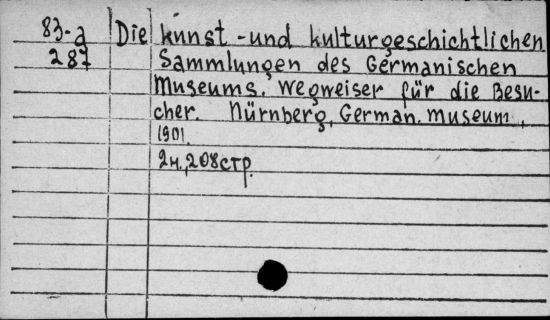 83-a Die kunst-und kulturgeschichtlichen
287 Sammlungen des Germanischen
Museums. Wegweiser für die Besu-
cher. Nürnberg, German. museum,
1901.
2н.,208стр.